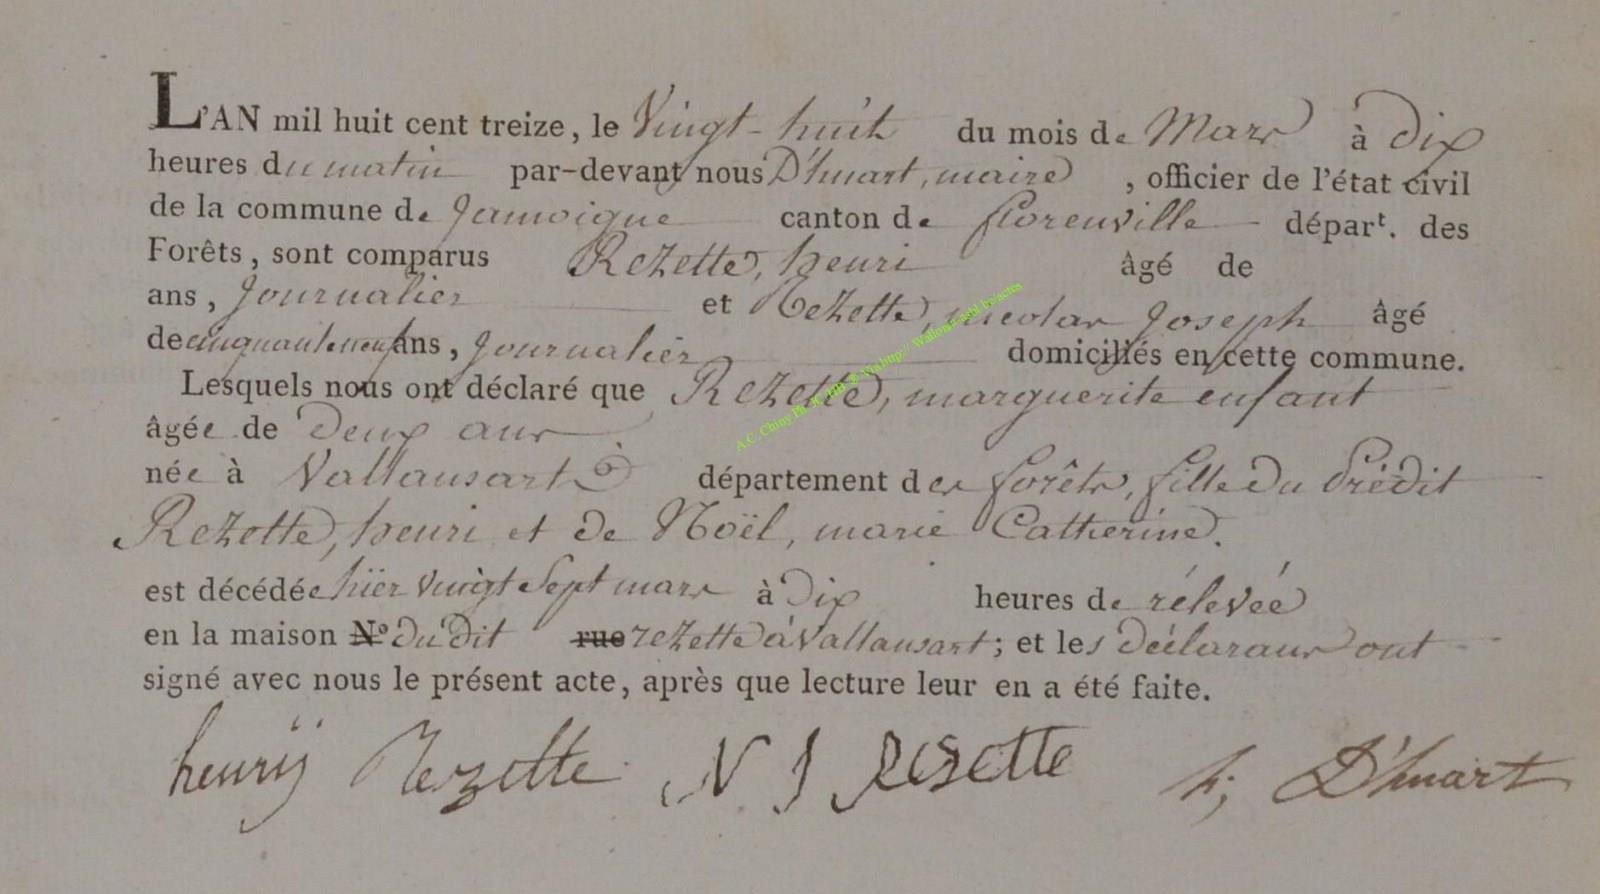 L'AN mil huit cent treize, le Vingt-huit du mois de Mars à dix
heures du matin par-devant nous D'huart, maire, officier de l'état civil
de la commune de Jamoigne canton de florenville départ. des
Forêts, sont comparus Rezette, henri âgé de
ans, Journalier et Rezette, nicolas Joseph âgé
de cinquante neuf ans, Journalier domiciliés en cette commune.
Lesquels nous ont déclaré que Rezette, marguerite enfant
âgée de deux ans
née à Vallansart département des forêts, fille du Prédit
Rezette, henri et de Noël, marie Catherine.
est décédée hïer vingt Sept mars à dix heures de rélevéé
en la maison N° du dit rue rezette à Vallansart; et les déclarans ont
signé avec nous le présent acte, après que lecture leur en a été faite.
henrÿ Rezette N J Rezette h; D'huart
A.C. Chiny Ph JC